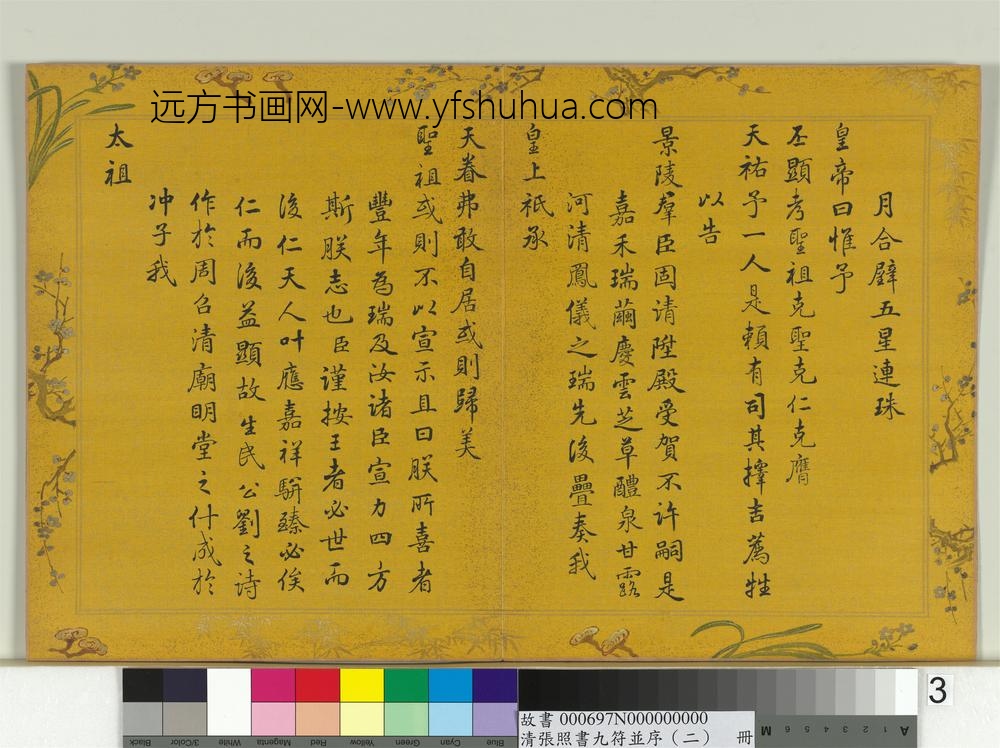 远方书画网-www.yfshuhua.com
月合璧五星連珠
皇帝曰惟予
丕顯考聖祖克聖克仁克膺
天祐予一人是賴有司其擇吉薦牲
以告
景陵羣臣固請陞殿受賀不許嗣是
嘉禾瑞繭慶雲芝草醴泉甘露
河清鳳儀之瑞先後疊奏我
皇上祇承
天眷弗敢自居或則歸美
聖祖或則不以宣示且曰朕所喜者
豐年為瑞及汝諸臣宣力四方
斯朕志也臣謹按王者必世而
後仁天人叶應嘉祥駢臻必俟
仁而後益顯故生民公劉之诗
作於周召清廟明堂之什成於
冲子我
太祖
3
故書 000697N000000000
清張照書九符並序（二） 冊
Black
3/Color
White
Magenta
Red
Yellow
Green
Cyan
Blue
A 1 2 3 4 5 6 M